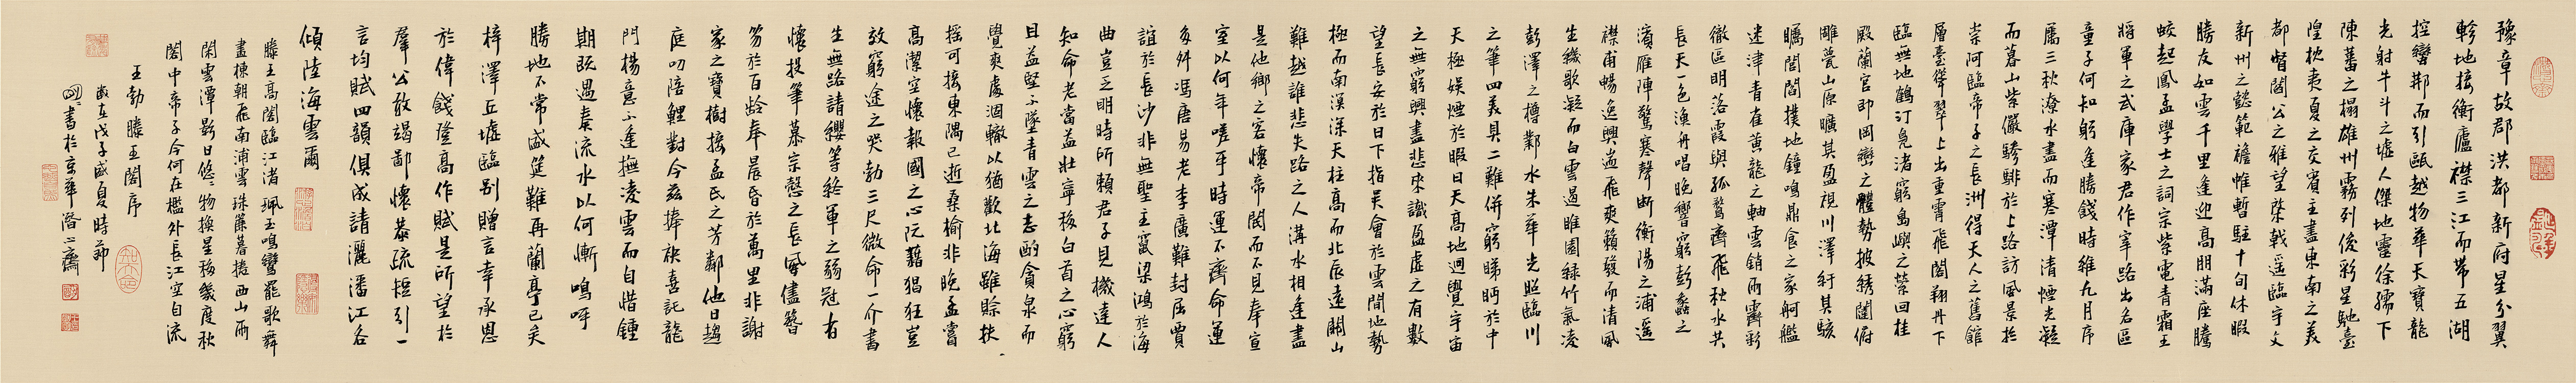 豫章故郡洪都新府星分翼
軫地接衡廬襟三江而帶五湖
控蠻荆而引甌越物華天寶龍
光射牛斗之墟人傑地靈徐孺下
陳蕃之榻雄州霧列俊彩星馳臺
隍枕夷夏之交賓主盡東南之美
都督閻公之雅望棨戟遥臨宇文
新州之懿範襜帷暫駐十旬休暇
勝友如雲千里逢迎高朋滿座騰
蛟起鳳孟學士之詞宗紫電青霜王
將軍之武庫家君作宰路出名區
童子何知躬逢勝餞時維九月序
屬三秋潦水盡而寒潭清煙光凝
而暮山紫儼驂騑於上路訪風景於
崇阿臨帝子之長洲得天人之舊館
層臺聳翠上出重霄飛閣翔丹下
臨無地鶴汀鳧渚窮島嶼之縈回桂
殿蘭宫即岡巒之體勢披綉闥俯
雕甍山原曠其盈視川澤紆其駭
矚閭閻撲地鐘鳴鼎食之家舸艦
迷津青雀黄龍之軸雲銷雨霽彩
徹區明落霞與孤鶩齊飛秋水共
長天一色漁舟唱晚響窮彭蠡之
濱雁陣驚寒聲断衡陽之浦遥
襟甫暢逸興遄飛爽籟發而清風
生纖歌凝而白雲遏睢園緑竹氣凌
彭澤之樽鄴水朱華光照臨川
之筆四美具二難併窮睇眄於中
天極娱煙於暇日天高地迥覺宇宙
之無窮興盡悲來識盈虚之有數
望長安於日下指吴會於雲間地勢
極而南溟深天柱高而北辰遠關山
難越誰悲失路之人溝水相逢盡
是他鄉之客懷帝閽而不見奉宣
室以何年嗟乎時運不齊命運
多舛馮唐易老李廣難封屈賈
誼於長沙非無聖主竄梁鴻於海
曲豈乏明時所賴君子見機達人
知命老當益壯寧移白首之心窮
且益堅不墜青雲之志酌貪泉而
覺爽處涸轍以猶歡北海雖賒扶
摇可接東隅已逝桑榆非晚孟嘗
高潔空懷報國之心阮籍猖狂豈
效窮途之哭勃三尺微命一介書
生無路請纓等終軍之弱冠有
懷投筆慕宗慤之長風儘簪
笏於百齡奉晨昏於萬里非謝
家之寶樹接孟氏之芳鄰他日趨
庭叨陪鯉對今兹捧袂喜託龍
門楊意不逢撫凌雲而自惜鍾
期既遇奏流水以何慚嗚呼
勝地不常盛筵難再蘭亭已矣
梓澤丘墟臨别贈言幸承恩
於偉餞登高作賦是所望於
羣公敢竭鄙懷恭疏短引一
言均賦四韻俱成請灑潘江各
傾陸海雲爾
滕王高閣臨江渚珮玉鳴鸞罷歌舞
畫棟朝飛南浦雲珠簾暮捲西山雨
閑雲潭影日悠悠物換星移幾度秋
閣中帝子今何在檻外長江空自流
王勃滕王閣序
歲在戊子盛夏時節
書於京華